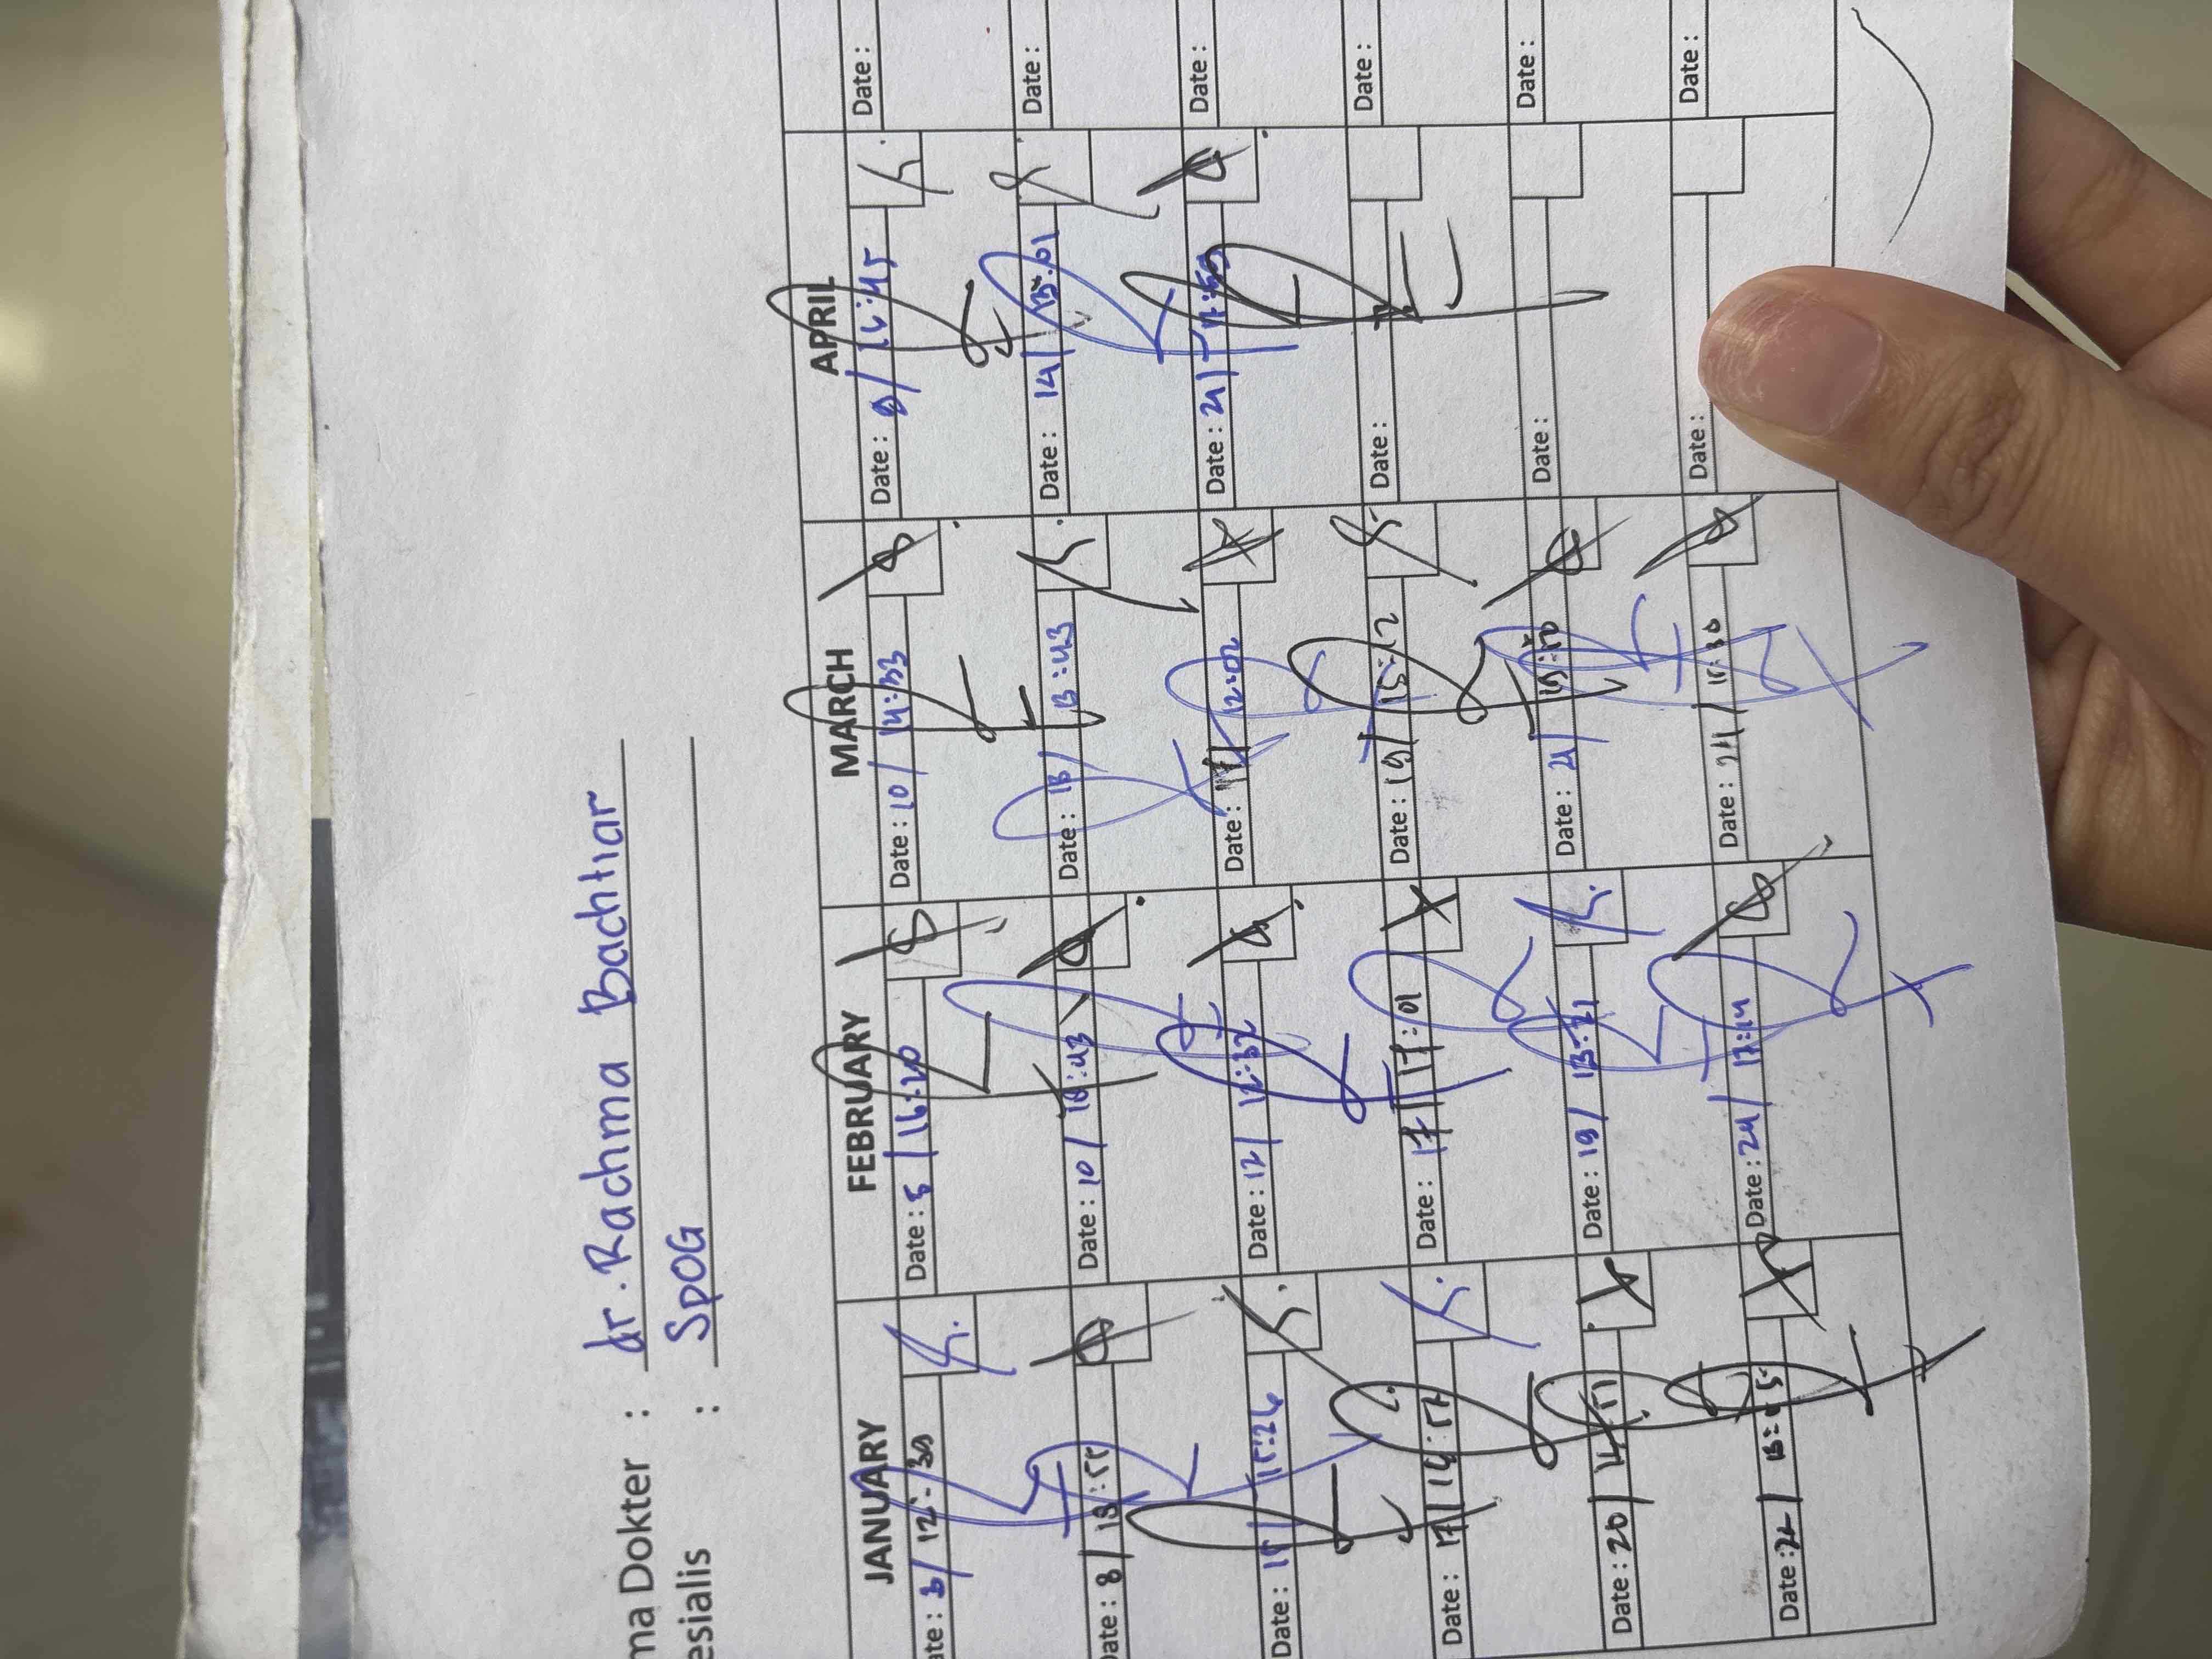 ma Dokter : dr. Rachma Bachtiar
esialis : SpOG
JANUARY FEBRUARY MARCH APRIL
ate : 6/ 12:30 Date : 5 / 16:20 Date : 10 / 14:33 Date : 9/ 16:45 Date :
Date : 8 / 13:55 Date : 10 / 16:43 Date : 13/ 13:43 Date : 14/ 13:01 Date :
Date : 15/ 15:26 Date : 12 / 12:32 Date : 17/ 12:02 Date : 21/ Date :
Date : 17/ 14:57 Date : 17/ 17:01 Date : 19/ 15:12 Date : Date :
Date : 20 / Date : 19 / 13:21 Date : 21/ Date : Date :
Date : 22 / Date : 24 / 17:14 Date : 24 / Date : Date :